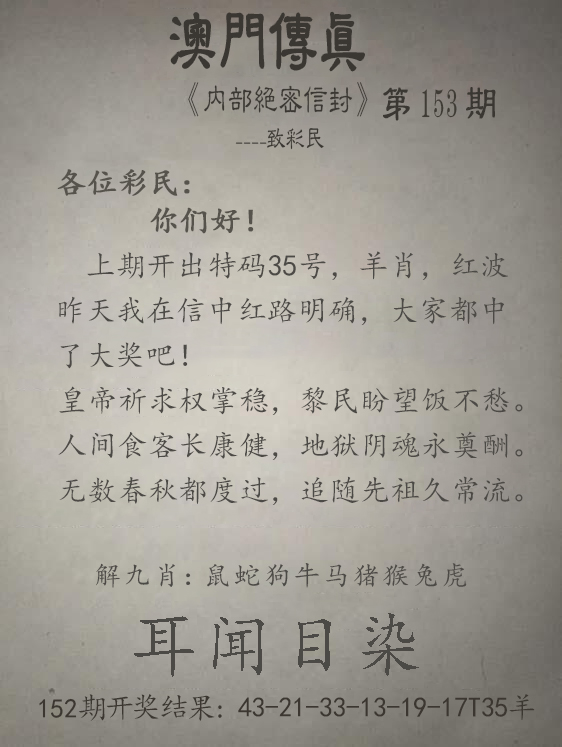 澳門傳真
《内部絕密信封》第153期
----致彩民
各位彩民：
你们好！
上期开出特码35号，羊肖，红波
昨天我在信中红路明确，大家都中
了大奖吧！
皇帝祈求权掌稳，黎民盼望饭不愁。
人间食客长康健，地狱阴魂永奠酬。
无数春秋都度过，追随先祖久常流。
解九肖：鼠蛇狗牛马猪猴兔虎
耳闻目染
152期开奖结果：43-21-33-13-19-17T35羊